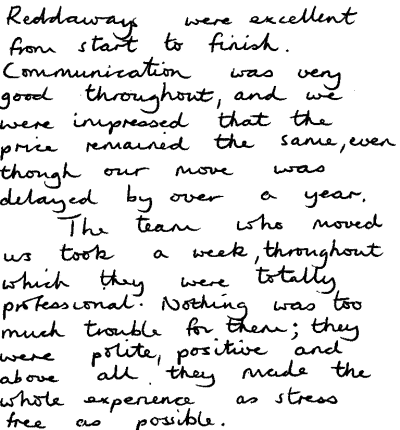 Reddaways were excellent
from start to finish.
Communication was very
good throughout, and we
were impressed that the
price remained the same, even
though our move was
delayed by over a year.
The team who moved
us took a week, throughout
which they were totally
professional. Nothing was too
much trouble for them; they
were polite, positive and
above all they made the
whole experience as stress
free as possible.